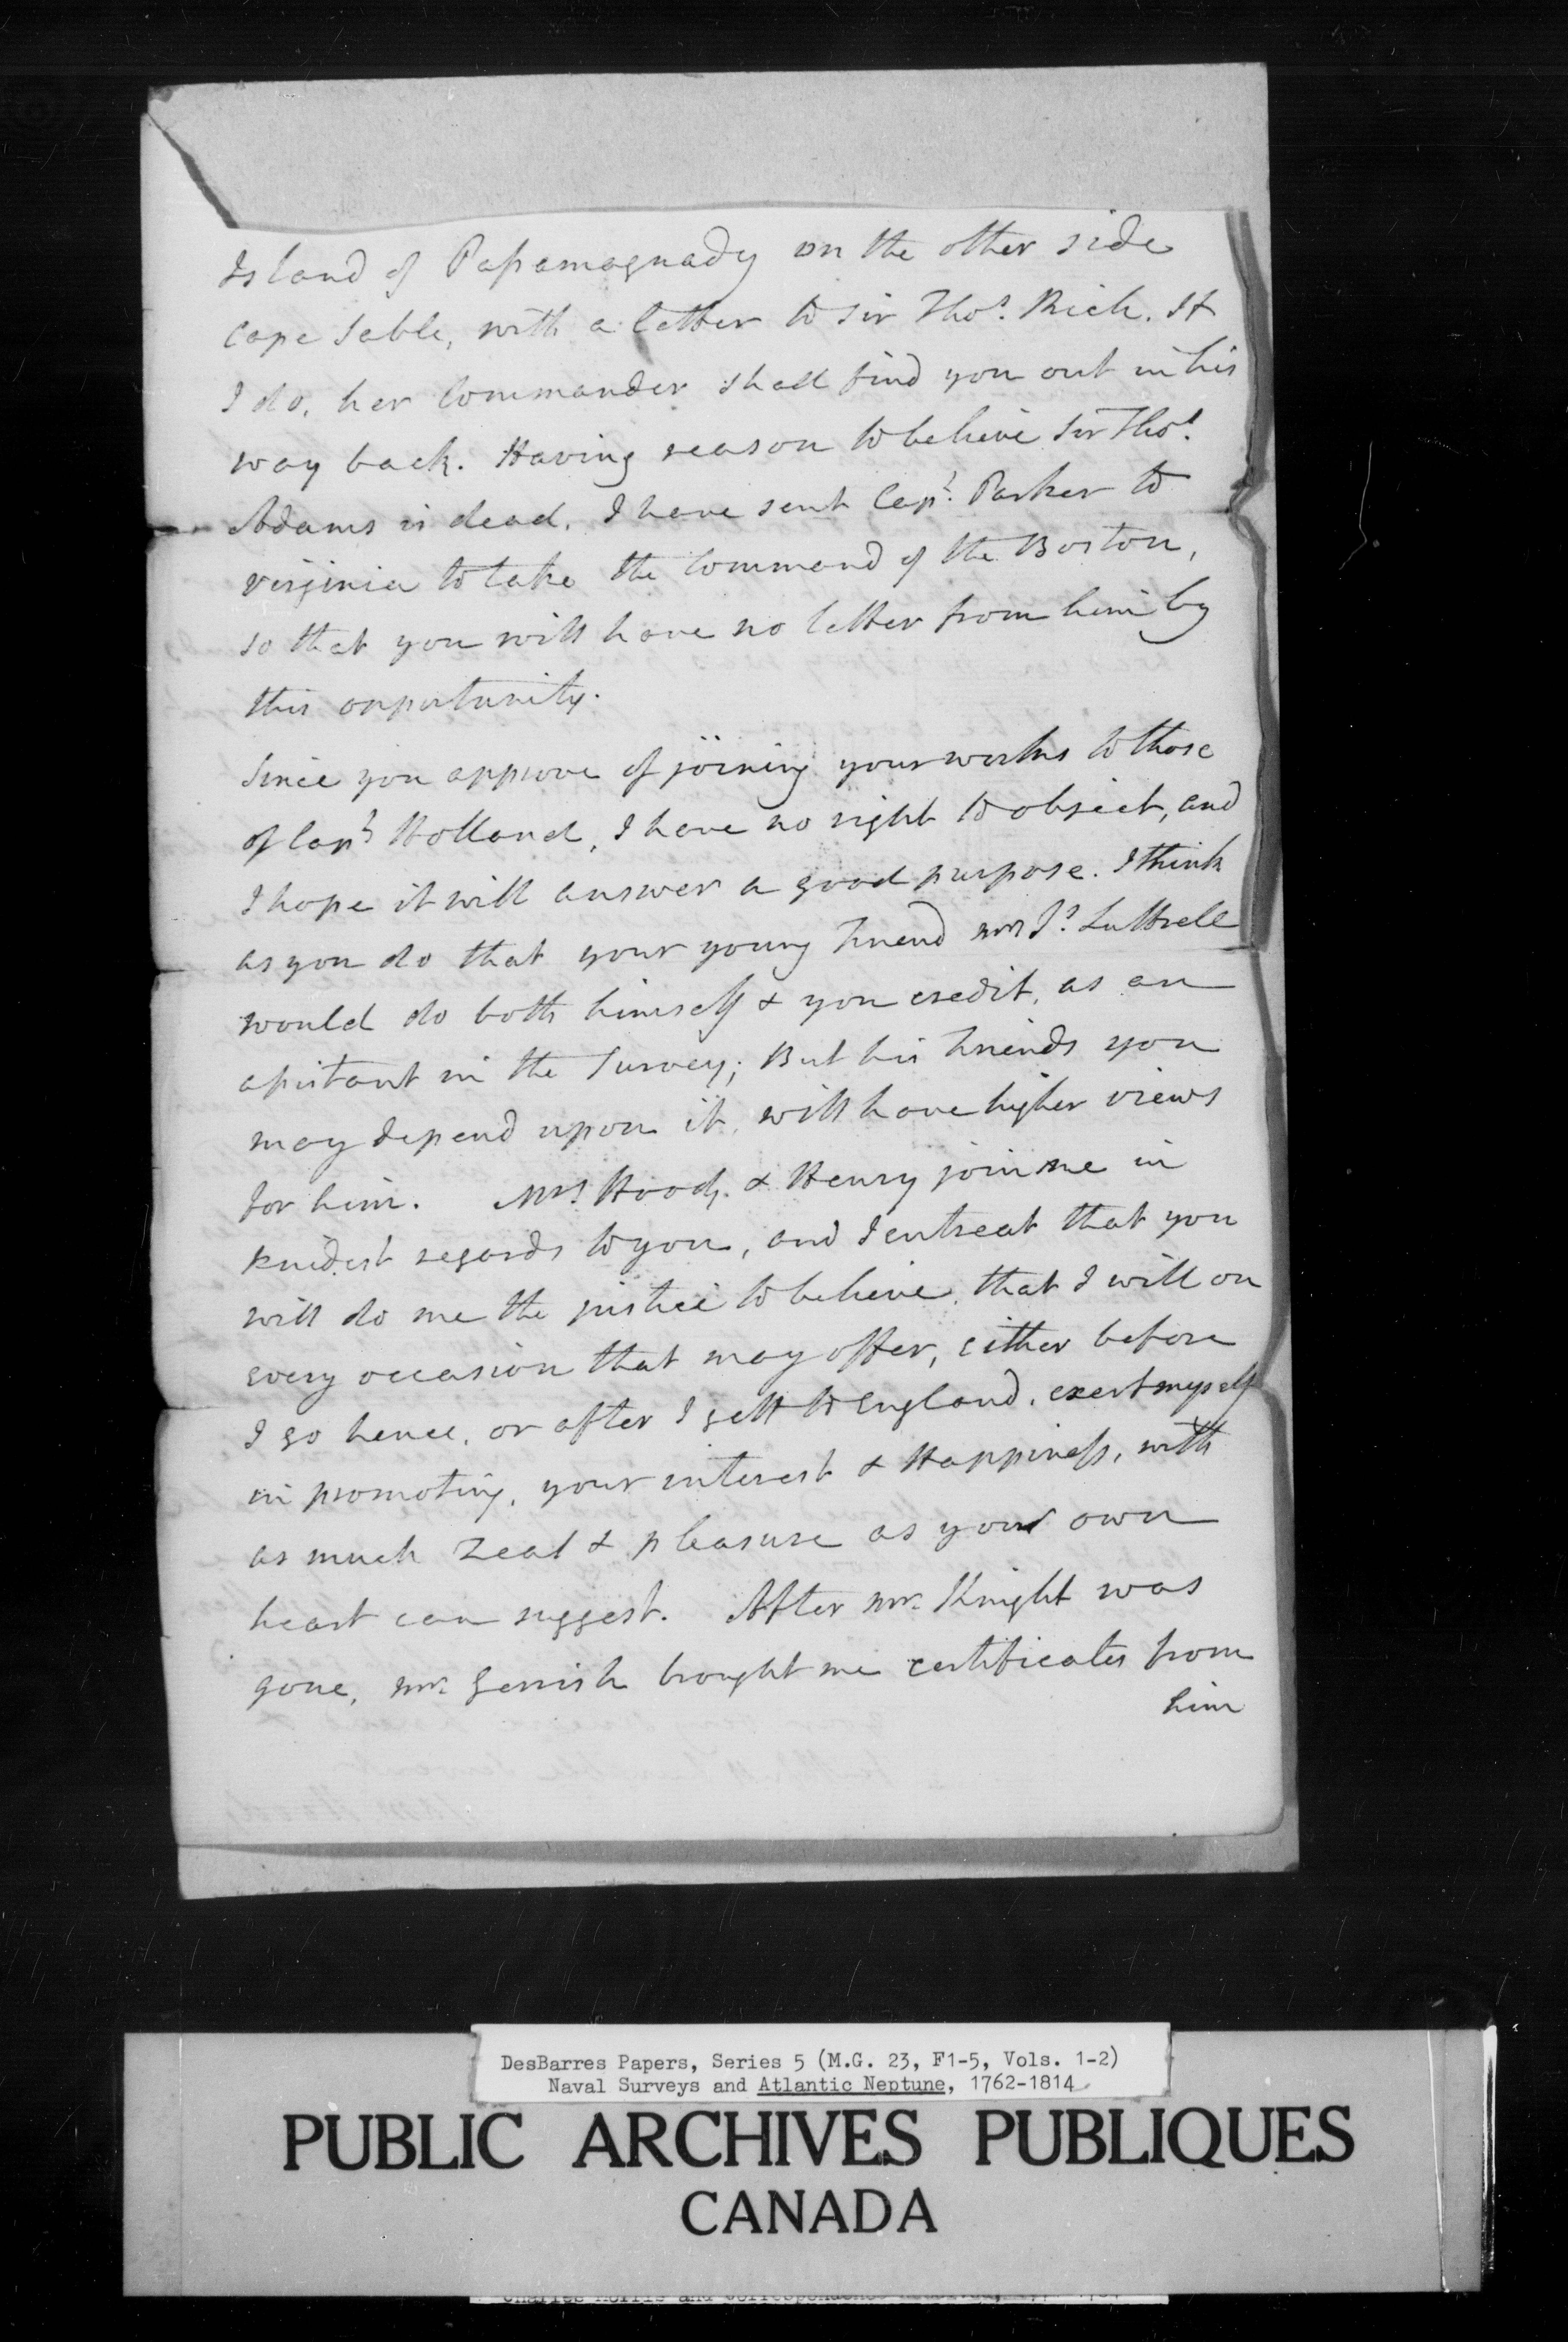 Island of Pasamaquady on the other side
Cape Sable, with a letter to Sir Thos. Rich. If
I do, her Commander shall find you out in his
way back. Having reason to believe Sir Thos.
Adams is dead, I have sent Capt. Parker to
Virginia to take the Command of the Boston,
so that you will have no letter from him by
this opportunity.
Since you approve of joining your works to those
of Capt. Holland, I have no right to object, and
I hope it will answer a good purpose. I think
as you do that your young Friend Mr Js. Luttrell
would do both himself & you credit, as an
assistant in the Survey; But his Friends you
may depend upon it, will have higher views
for him. Mrs. Hood, & Henry join me in
kindest regards to you, and I entreat that you
will do me the justice to believe, that I will on
every occasion that may offer, either before
I go hence, or after I gett to England, exert myself
in promoting, your interest & Happiness, with
as much Zeal & pleasure as your own
heart can suggest. After Mr. Knight was
gone, Mr. Gerrish brought me certificates from
him
DesBarres Papers, Series 5 (M.G. 23, F1-5, Vols. 1-2)
Naval Surveys and Atlantic Neptune, 1762-1814
PUBLIC ARCHIVES PUBLIQUES
CANADA